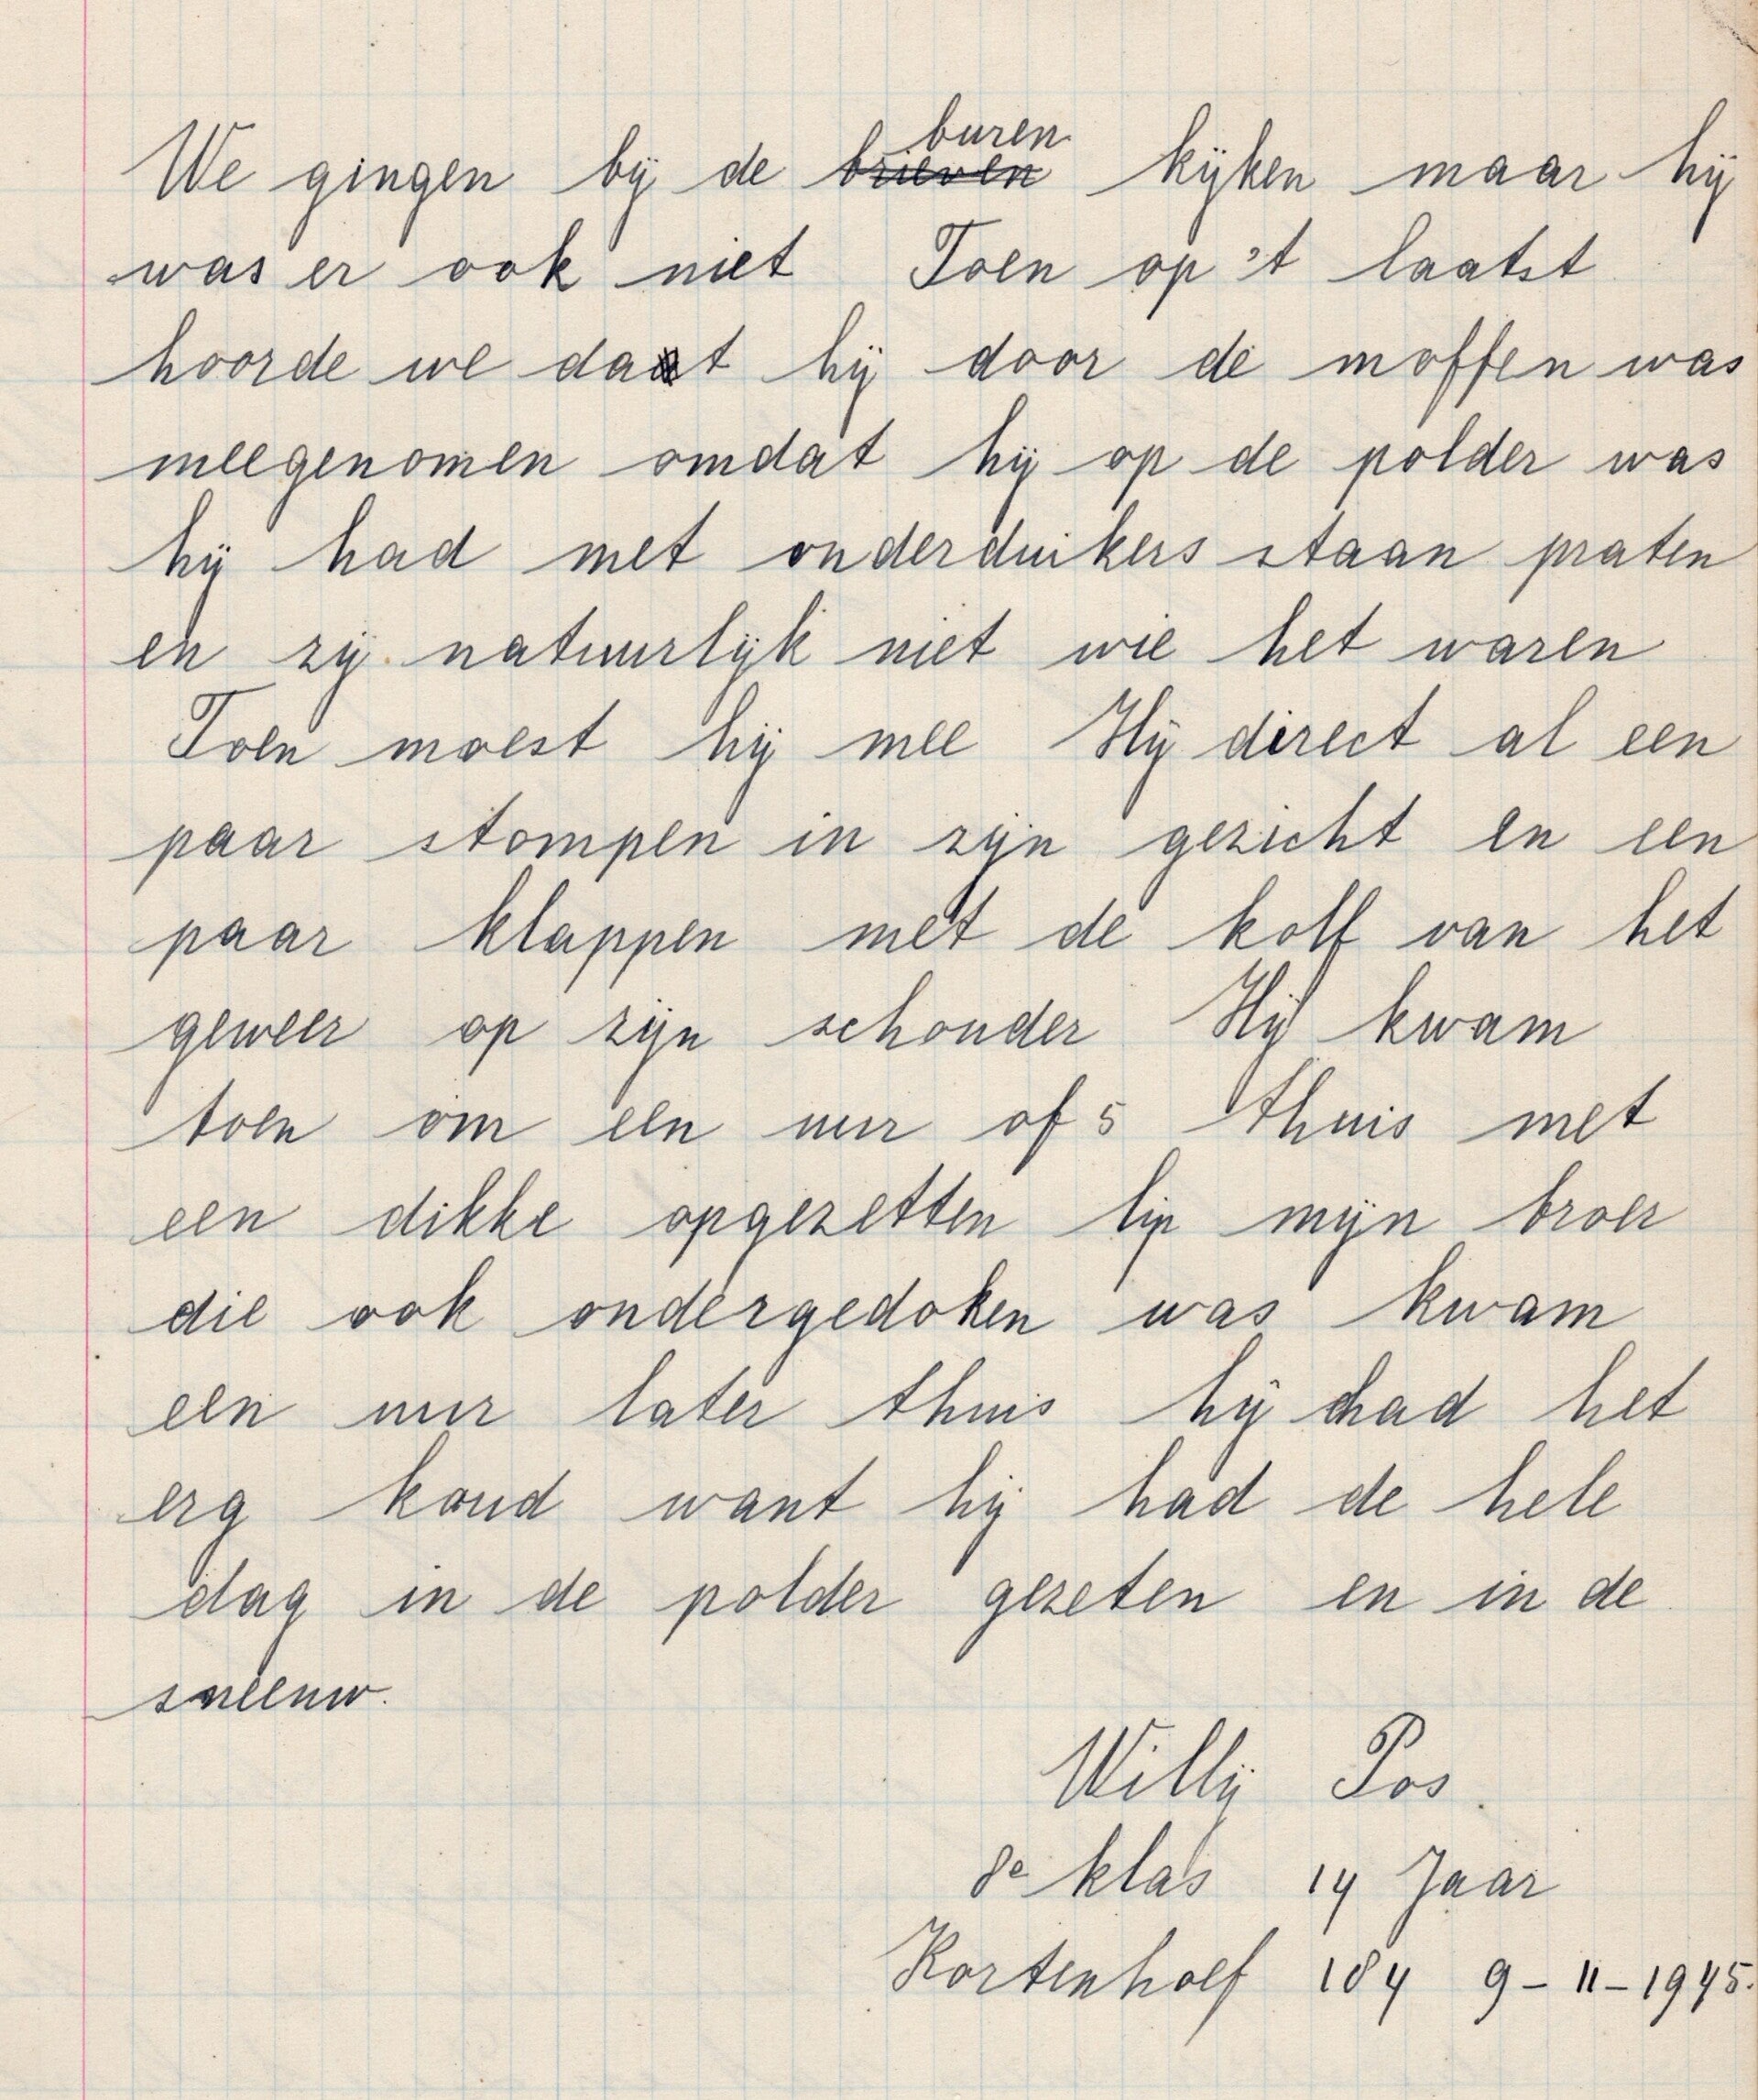 We gingen bij de brieven buren kijken maar hij
was er ook niet Toen op 't laatst
hoorde we dat hij door de moffen was
meegenomen omdat hij op de polder was
hij had met onderduikers staan praten
en zij natuurlijk niet wie het waren
Toen moest hij mee Hij direct al een
paar stompen in zijn gezicht en een
paar klappen met de kolf van het
geweer op zijn schouder Hij kwam
toen om een uur of 5 thuis met
een dikke opgezetten lip mijn broer
die ook ondergedoken was kwam
een uur later thuis hij had het
erg koud want hij had de hele
dag in de polder gezeten en in de
sneeuw.
Willij Pos.
8e klas 14 Jaar
Kortenhoef 184 9-11-1945.